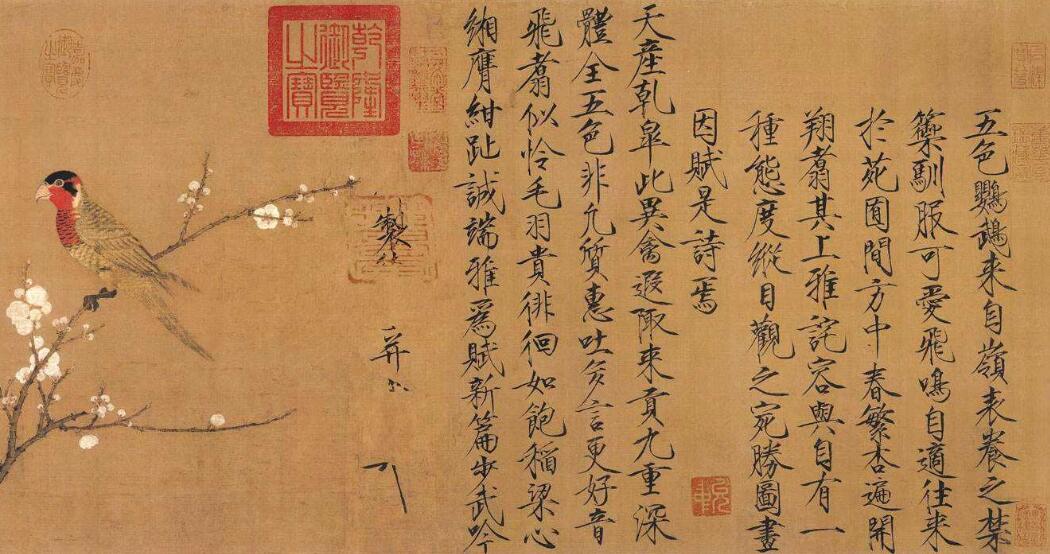 五色鸚鵡来自嶺表養之禁
籞馴服可愛飛鳴自適往来
於苑囿間方中春繁杏遍開
翔翥其上雅詫容與自有一
種態度縱目觀之宛勝圖畫
因賦是詩焉
天産乹皐此異禽遐陬来貢九重深
體全五色非凡質惠吐多言更好音
飛翥似怜毛羽貴徘徊如飽稻粱心
緗膺紺趾誠端雅爲賦新篇步武吟
乾隆
御覽
之寶